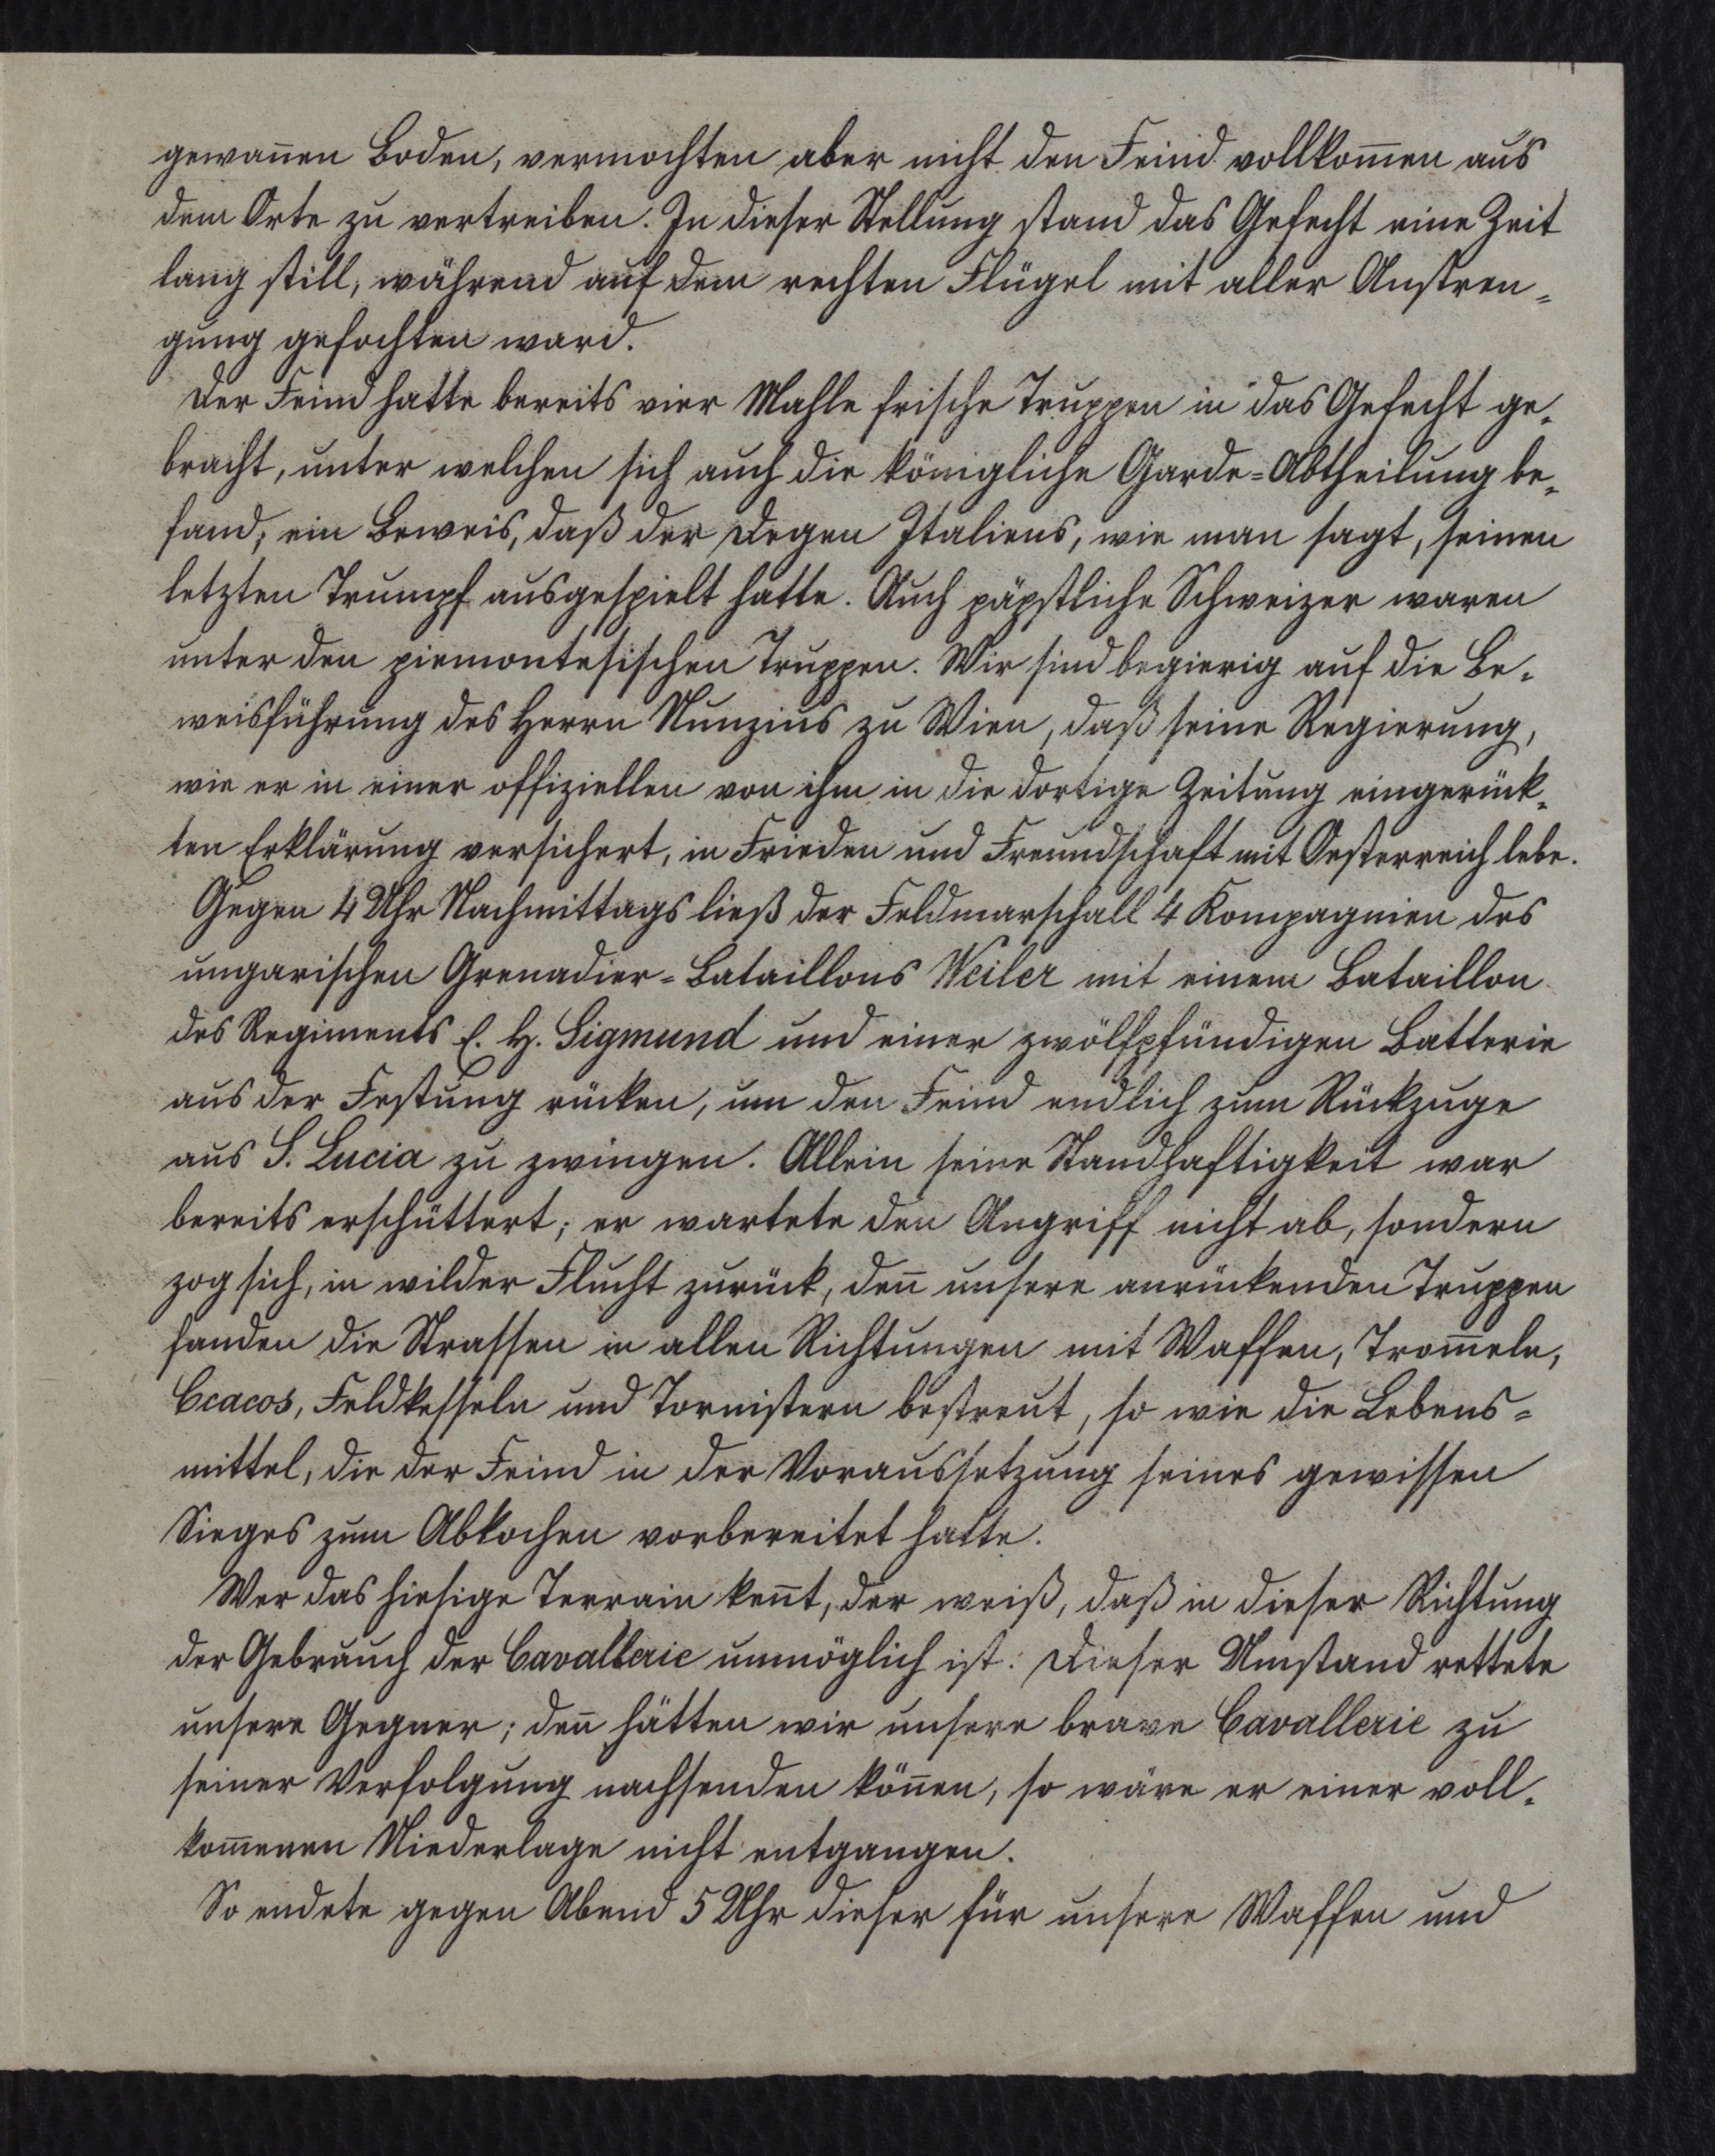 gewan̄en Boden, vermochten aber nicht den Feind vollkom̄en aus
dem Orte zu vertreiben. In dieser Stellung stand das Gefecht eine Zeit
lang still, während auf dem rechten Flügel mit aller Anstren¬
gung gefochten ward.
Der Feind hatte bereits vier Mahle frische Truppen in das Gefecht ge¬
bracht, unter welchen sich auch die königliche Garde-Abtheilung be¬
fand; ein Beweis, daß der Degen Italiens, wie man sagt, seinen
letzten Trumpf ausgespielt hatte. Auch päpstliche Schweizer waren
unter den piemontesischen Truppen. Wir sind begierig auf die Be¬
weisführung des Herrn Nunzius zu Wien, daß seine Regierung,
wie er in einer offiziellen von ihm in die dortige Zeitung eingerück¬
ten Erklärung versichert, in Frieden und Freundschaft mit Oesterreich lebe.
Gegen 4 Uhr Nachmittags ließ der Feldmarschall 4 Kompagnien des
ungarischen Grenadier-Bataillons Weiler mit einem Bataillon
des Regiments E. H. Sigmund und einer zwölfpfündigen Batterie
aus der Festung rücken, um den Feind endlich zum Rückzuge
aus S. Lucia zu zwingen. Allein seine Standhaftigkeit war
bereits erschüttert; er wartete den Angriff nicht ab, sondern
zog sich, in wilder Flucht zurück, den̄ unsere anrückenden Truppen
fanden die Strassen in allen Richtungen mit Waffen, Trom̄eln,
Ccacos, Feldkesseln und Tornistern bestreut, so wie die Lebens¬
mittel, die der Feind in der Voraussetzung seines gewissen
Sieges zum Abkochen vorbereitet hatte.
Wer das hiesige Terrain ken̄t, der weiß, daß in dieser Richtung
der Gebrauch der Cavallerie unmöglich ist. Dieser Umstand rettete
unsere Gegner; den̄ hätten wir unsere brave Cavallerie zu
seiner Verfolgung nachsenden kön̄en, so wäre er einer voll¬
kom̄enen Niederlage nicht entgangen.
So endete gegen Abend 5 Uhr dieser für unsere Waffen und